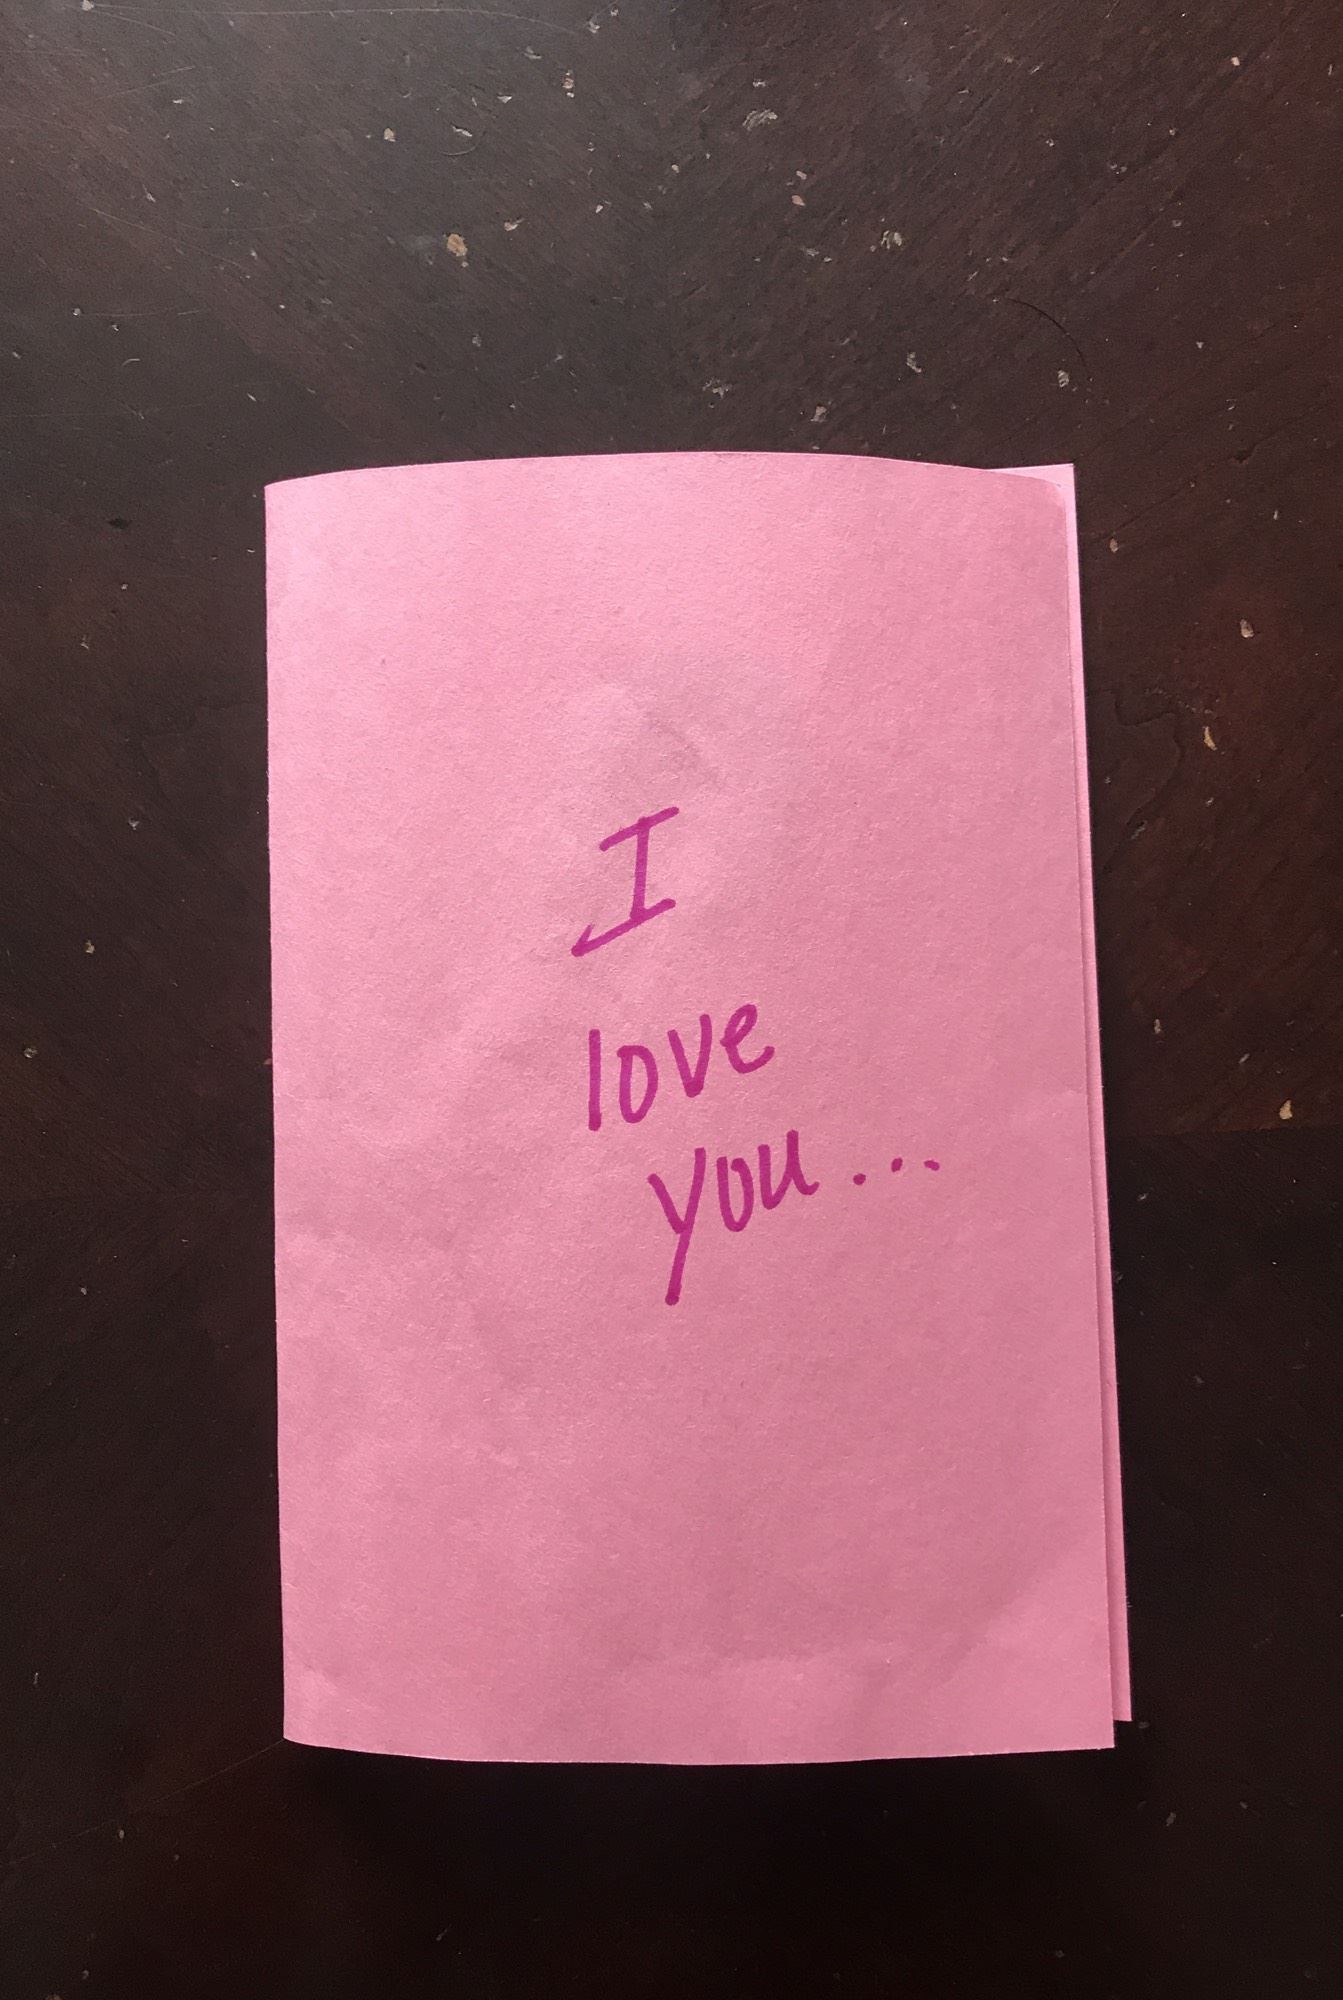 I
love
you...